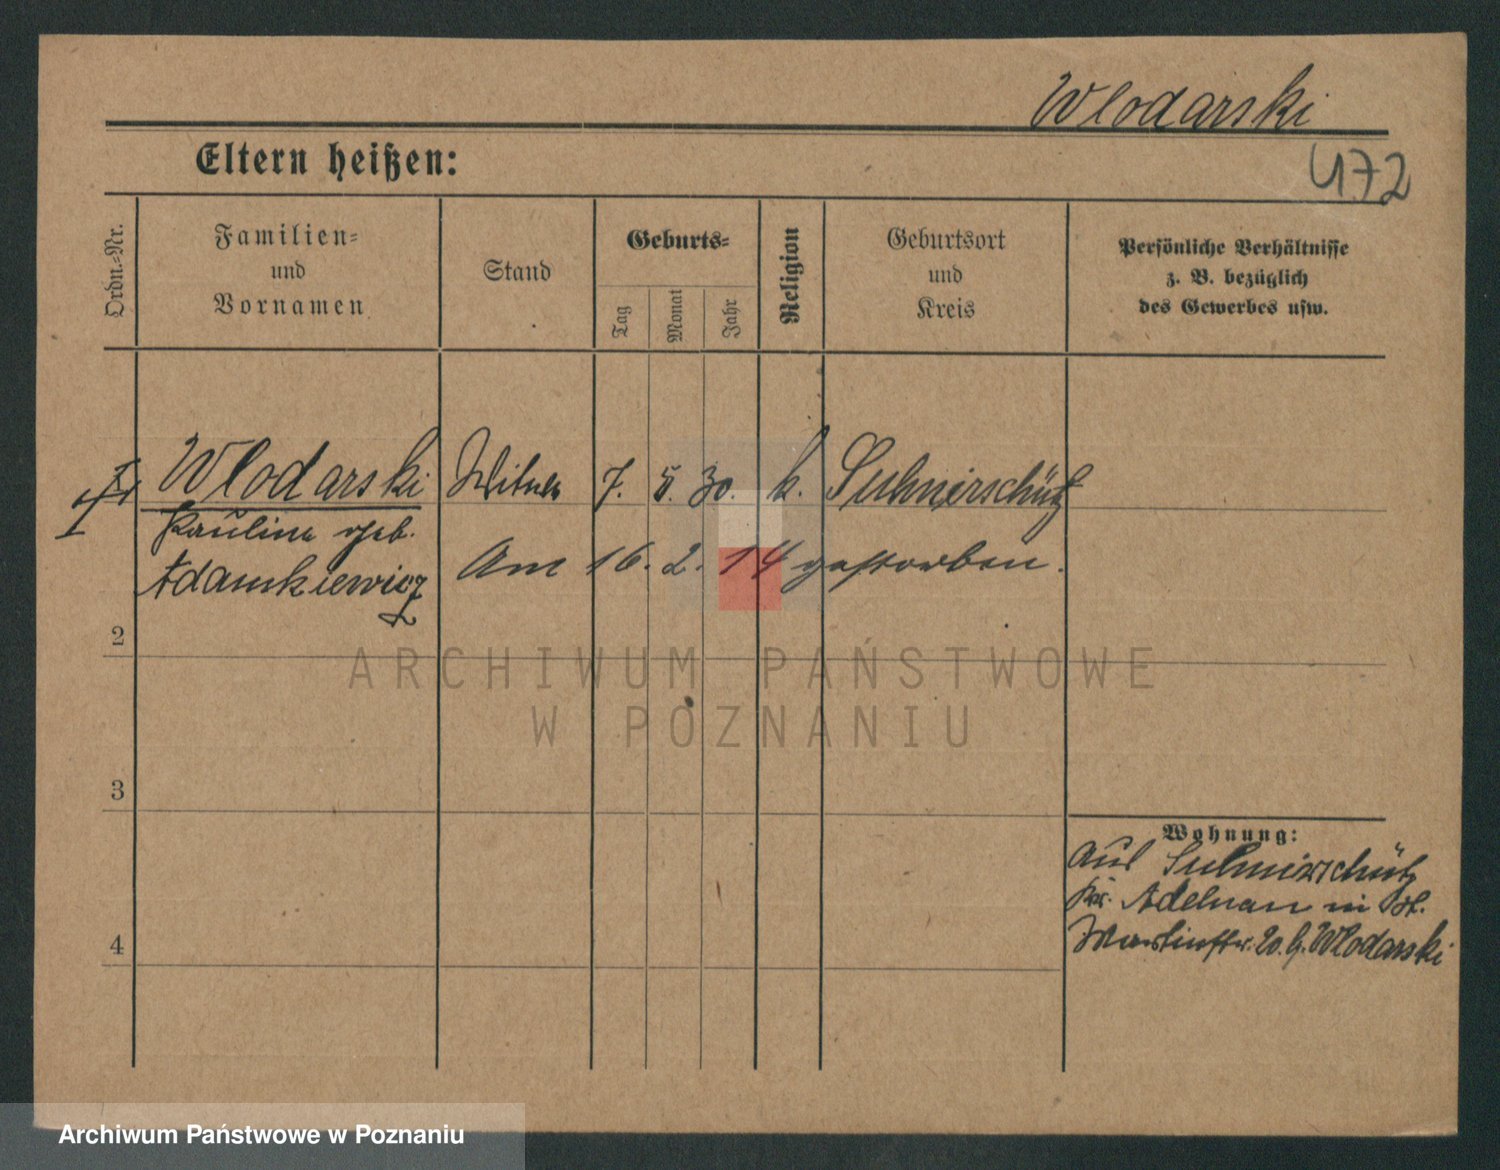 Wlodarski
472
Eltern heißen:
Ordn.-Nr.
Familien-
und
Vornamen
Stand
Geburts-
Tag
Monat
Jahr
Religion
Geburtsort
und
Kreis
Persönliche Verhältnisse
z. B. bezüglich
des Gewerbes usw.
Wlodarski Witwe 7. 5. 30. k. Suhmirschütz
Paulina geb.
Adamkiewicz
Am 16. 2. 14 gestorben.
2
3
4
Wohnung:
Aus Suhmirschütz
Kr. Adelnau in St.
Martinstr. 20. b. Wlodarski
ARCHIWUM PAŃSTWOWE
W POZNANIU
Archiwum Państwowe w Poznaniu